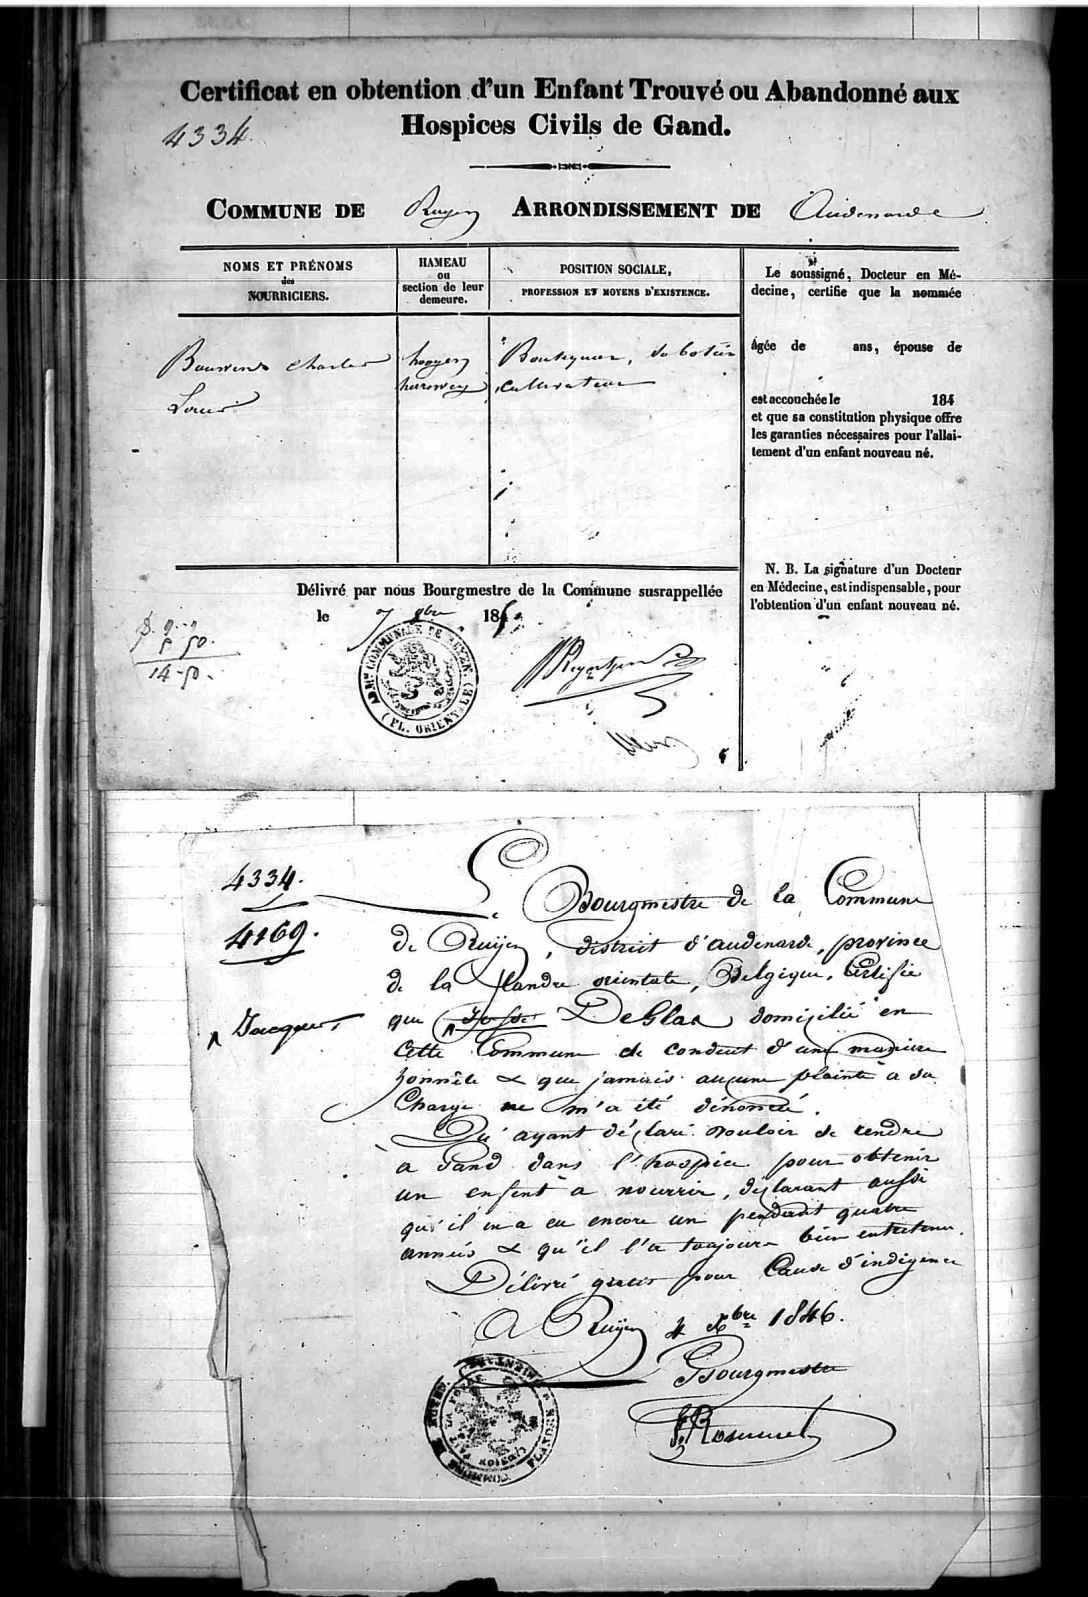 Certificat en obtention d'un Enfant Trouvé ou Abandonné aux
Hospices Civils de Gand.
4334.
COMMUNE DE Ruyen ARRONDISSEMENT DE Audenarde
NOMS ET PRÉNOMS
des
NOURRICIERS.
HAMEAU
ou
section de leur
demeure.
POSITION SOCIALE,
PROFESSION ET MOYENS D'EXISTENCE.
Charles
Louis
Boutiquier, sabotier
cultivateur
Le soussigné, Docteur en Mé-
decine, certifie que la nommée
âgée de ans, épouse de
est accouchée le 184
et que sa constitution physique offre
les garanties nécessaires pour l'allai-
tement d'un enfant nouveau né.
N. B. La signature d'un Docteur
en Médecine, est indispensable, pour
l'obtention d'un enfant nouveau né.
Délivré par nous Bourgmestre de la Commune susrappellée
le 7 9bre 185
5 50.
14-50.
(FL. ORIENTALE)
4334.
4169.
Le Bourgmestre de la Commune
de Ruijen, district d'audenarde, province
de la flandre orientale, Belgique, Certifie
Jacques
que DeGlas domicilié en
cette Commune se conduit d'une manière
honnête & que jamais aucune plainte à sa
Charge ne m'a été dénoncée.
Qu'ayant déclaré vouloir se rendre
à Gand dans l'hospice pour obtenir
un enfent à nourrir, déclarant aussi
qu'il en a eu encore un pendant quatre
années & qu'il l'a toujours bien entretenu.
Délivré gratis pour Cause d'indigence
A Ruijen 4 Xbre 1846.
Bourgmestre